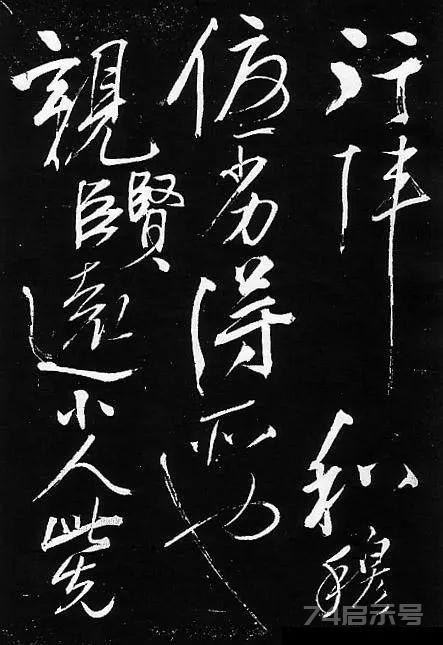 行陣和穆
優劣得所也
親賢臣遠小人此先
74启示号